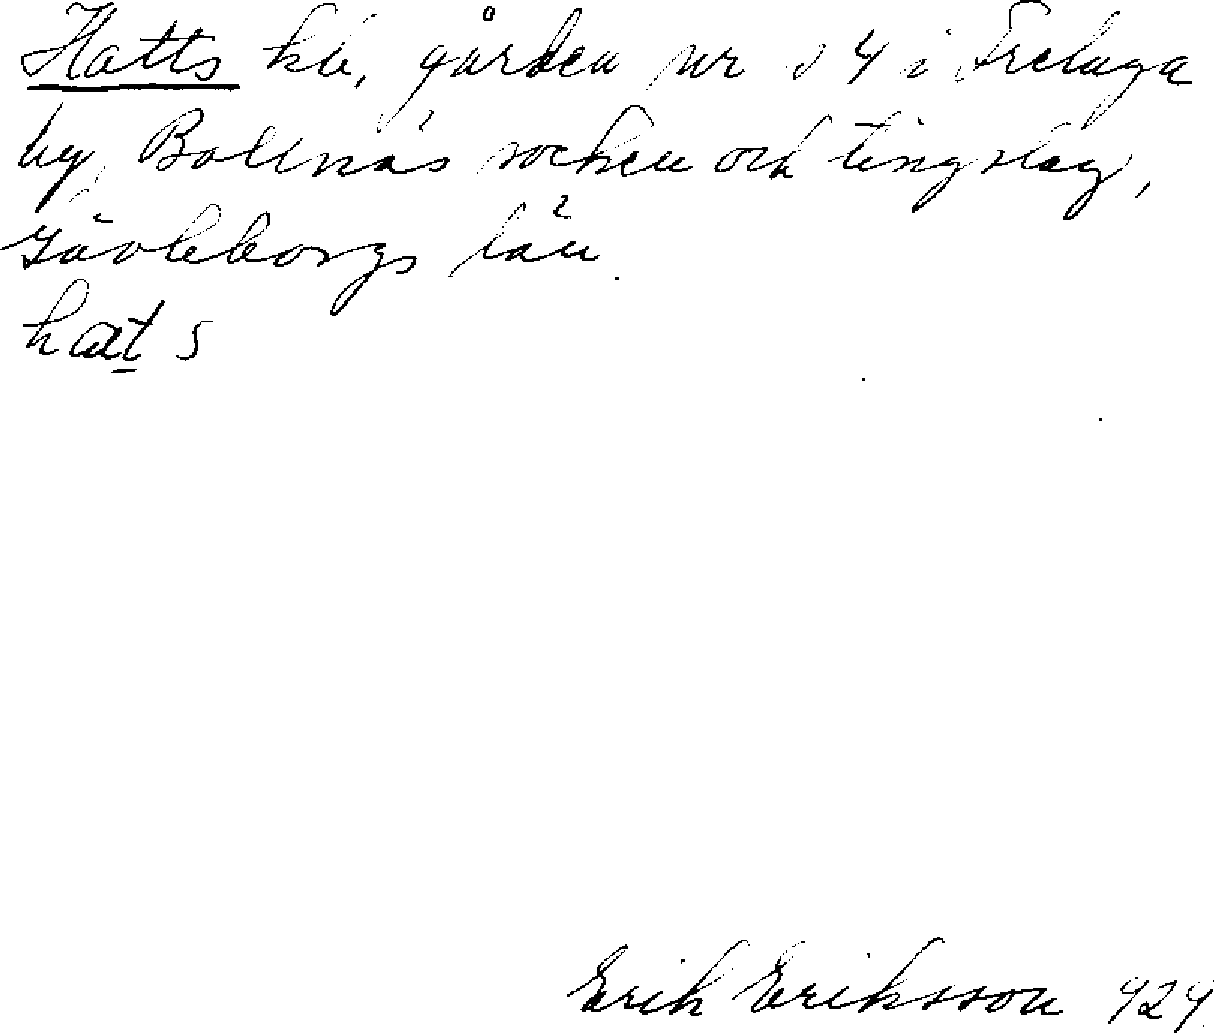 Hatts kb, gården nr 4 i Freluga
by, Bollnäs socken och tingslag,
Gävleborgs län.
hats
Erik Eriksson 929